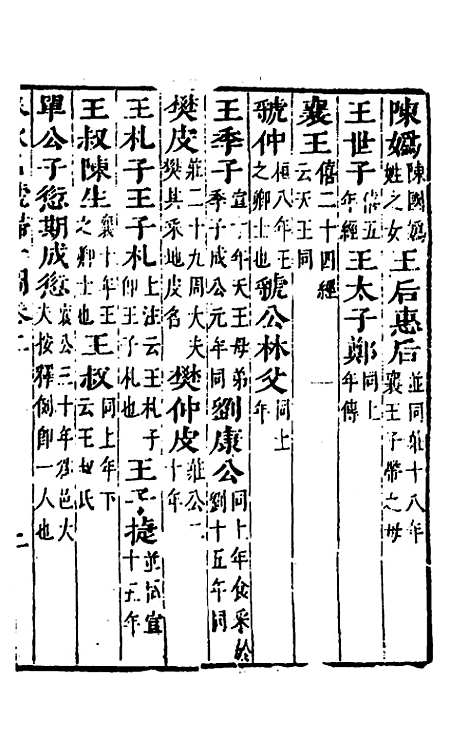 陳媯陳國媯姓之女王后惠后並同莊十八年襄王子帶之母
王世子僖五年經王太子鄭同上年傳
襄王僖二十四經云天王同
虢仲桓八年王之卿士也虢公林父同上年
王季子宣十年天王母弟季子成公元年同劉康公同上年食采於劉十五年同
樊皮莊二十九周大夫樊其采地皮名樊仲皮莊公三十年
王札子王子札上注云王札子仰王子札也王子捷並同宣十五年
王叔陳生襄十年王之卿士也王叔同上年下云王叔氏
單公子愆期成愆襄公三十年為邑大夫按釋例即一人也